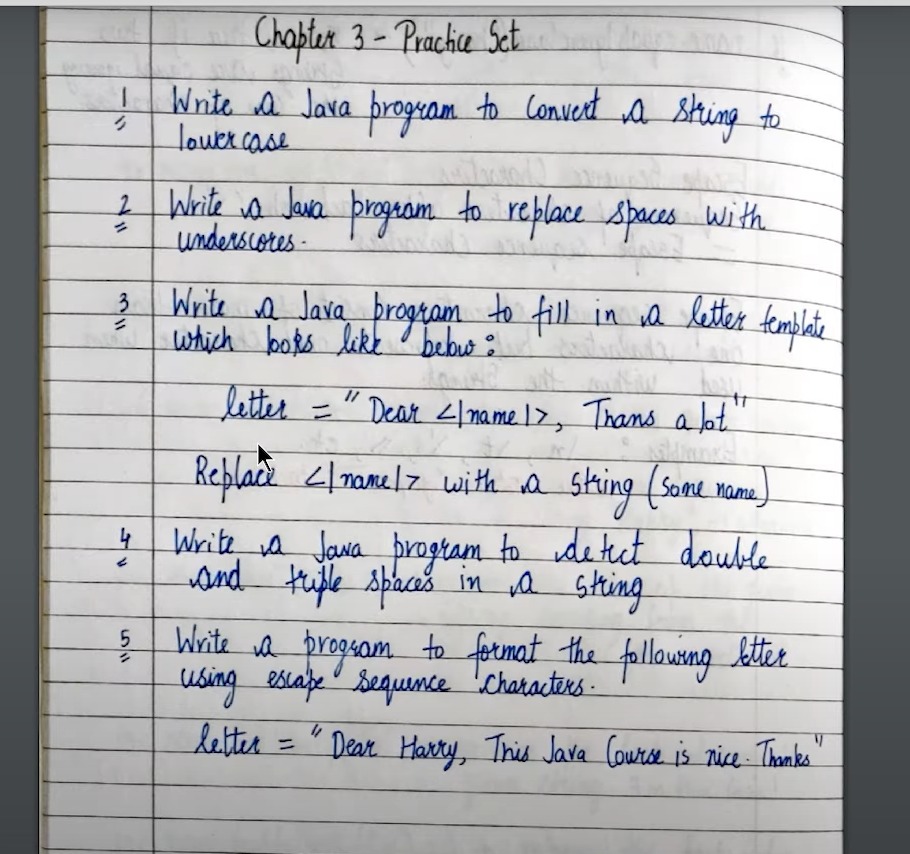 Chapter 3 - Practice Set
1 Write a Java program to Convert a string to
lowercase
2 Write a Java program to replace spaces with
underscores.
3 Write a Java program to fill in a letter template
which looks like below :
letter = "Dear <|name|>, Thans a lot"
Replace <|name|> with a string (some name)
4 Write a Java program to detect double
and triple spaces in a string
5 Write a program to format the following letter
using escape sequence characters.
letter = "Dear Harry, This Java Course is nice. Thanks"